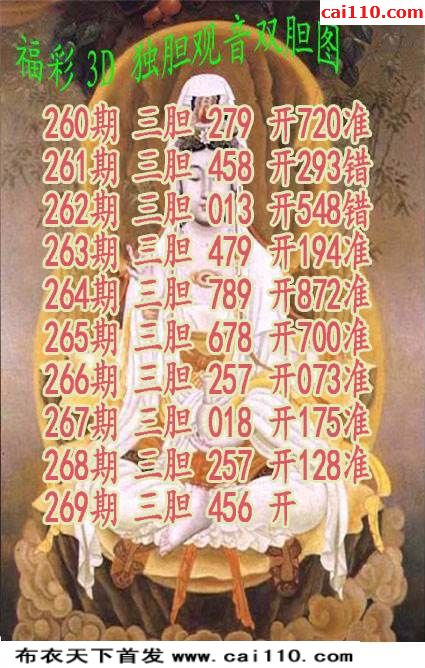 cai110.com
福彩 3D 独胆观音双胆图
260期 三胆 279 开720准
261期 三胆 458 开293错
262期 三胆 013 开548错
263期 三胆 479 开194准
264期 三胆 789 开872准
265期 三胆 678 开700准
266期 三胆 257 开073准
267期 三胆 018 开175准
268期 三胆 257 开128准
269期 三胆 456 开
布衣天下首发 www.cai110.com